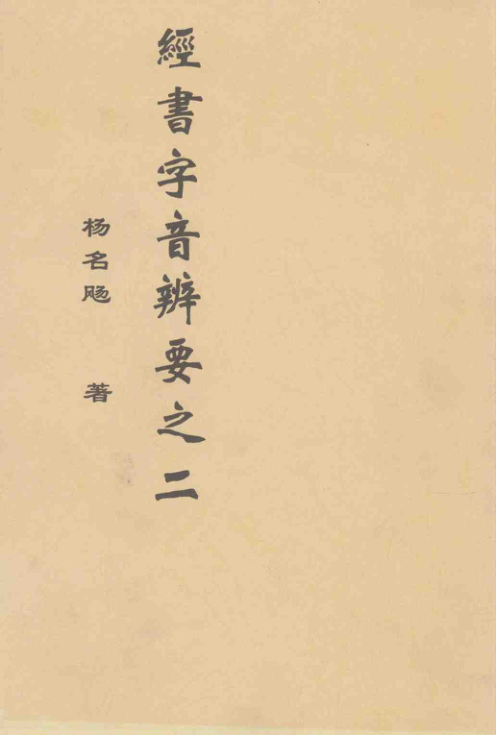 經書字音辨要之二
杨名飏 著